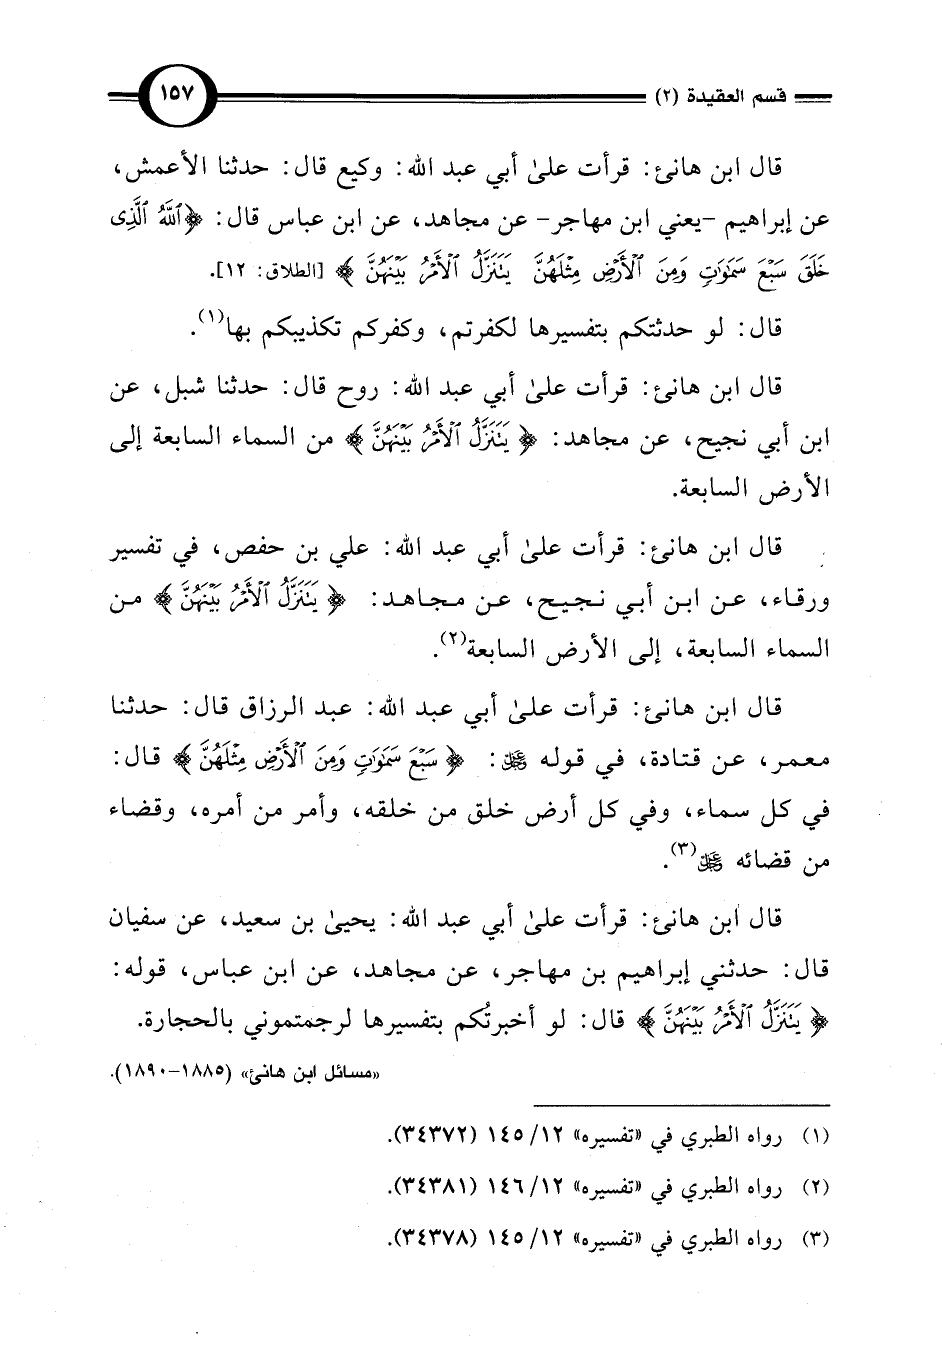 قسم العقيدة (٢)
١٥٧
قال ابن هانئ: قرأت علىٰ أبي عبد الله: وكيع قال: حدثنا الأعمش،
عن إبراهيم -يعني ابن مهاجر- عن مجاهد، عن ابن عباس قال: ﴿ٱللَّهُ ٱلَّذِى
خَلَقَ سَبْعَ سَمَٰوَٰتٍ وَمِنَ ٱلْأَرْضِ مِثْلَهُنَّ يَتَنَزَّلُ ٱلْأَمْرُ بَيْنَهُنَّ﴾ [الطلاق: ١٢].
قال: لو حدثتكم بتفسيرها لكفرتم، وكفركم تكذيبكم بها(١).
قال ابن هانئ: قرأت علىٰ أبي عبد الله: روح قال: حدثنا شبل، عن
ابن أبي نجيح، عن مجاهد: ﴿يَتَنَزَّلُ ٱلْأَمْرُ بَيْنَهُنَّ﴾ من السماء السابعة إلى
الأرض السابعة.
قال ابن هانئ: قرأت علىٰ أبي عبد الله: علي بن حفص، في تفسير
ورقاء، عن ابن أبي نجيح، عن مجاهد: ﴿يَتَنَزَّلُ ٱلْأَمْرُ بَيْنَهُنَّ﴾ من
السماء السابعة، إلى الأرض السابعة(٢).
قال ابن هانئ: قرأت علىٰ أبي عبد الله: عبد الرزاق قال: حدثنا
معمر، عن قتادة، في قوله ﷻ: ﴿سَبْعَ سَمَٰوَٰتٍ وَمِنَ ٱلْأَرْضِ مِثْلَهُنَّ﴾ قال:
في كل سماء، وفي كل أرض خلق من خلقه، وأمر من أمره، وقضاء
من قضائه ﷻ(٣).
قال ابن هانئ: قرأت علىٰ أبي عبد الله: يحيىٰ بن سعيد، عن سفيان
قال: حدثني إبراهيم بن مهاجر، عن مجاهد، عن ابن عباس، قوله:
﴿يَتَنَزَّلُ ٱلْأَمْرُ بَيْنَهُنَّ﴾ قال: لو أخبرتُكم بتفسيرها لرجمتموني بالحجارة.
«مسائل ابن هانئ» (١٨٨٥-١٨٩٠).
(١) رواه الطبري في «تفسيره» ١٢/ ١٤٥ (٣٤٣٧٢).
(٢) رواه الطبري في «تفسيره» ١٢/ ١٤٦ (٣٤٣٨١).
(٣) رواه الطبري في «تفسيره» ١٢/ ١٤٥ (٣٤٣٧٨).